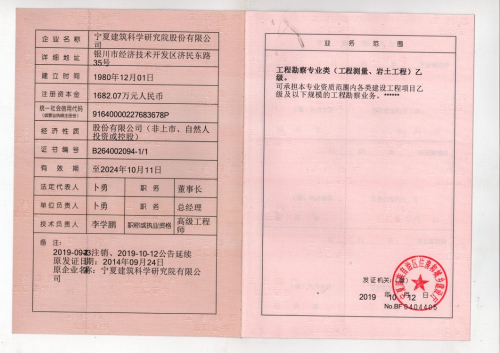 企业名称 宁夏建筑科学研究院股份有限公司
详细地址 银川市经济技术开发区济民东路35号
建立时间 1980年12月01日
注册资本金 1682.07万元人民币
统一社会信用代码
(或营业执照注册号) 91640000227683678P
经济性质 股份有限公司（非上市、自然人投资或控股）
证书编号 B264002094-1/1
有效期 至2024年10月11日
法定代表人 卜勇 职务 董事长
单位负责人 卜勇 职务 总经理
技术负责人 李学鹏 职称或执业资格 高级工程师
备注:
注销、2019-10-12公告延续
原发证日期:2014年09月24日
原企业名称:宁夏建筑科学研究院有限公司
业务范围
工程勘察专业类（工程测量、岩土工程）乙级。
可承担本专业资质范围内各类建设工程项目乙级及以下规模的工程勘察业务。******
发证机关:(章)
2019年10月12日
No.BF 0404405